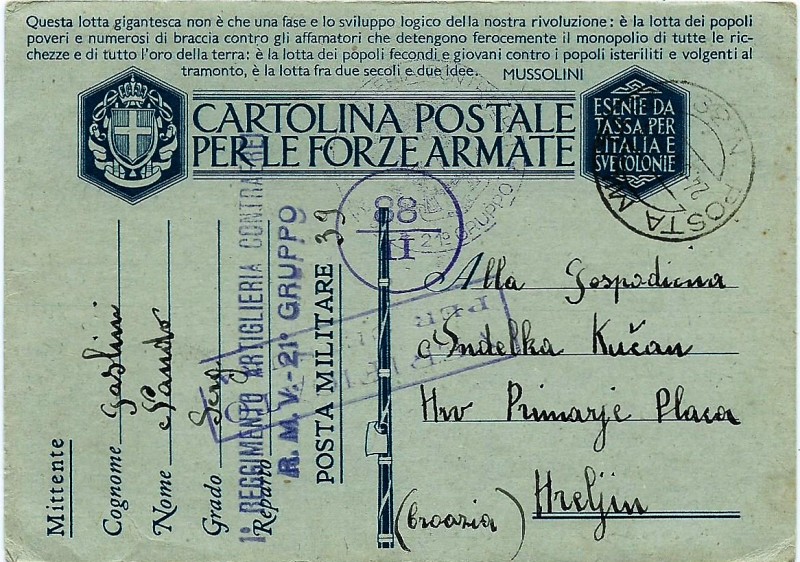 Questa lotta gigantesca non è che una fase e lo sviluppo logico della nostra rivoluzione: è la lotta dei popoli
poveri e numerosi di braccia contro gli affamatori che detengono ferocemente il monopolio di tutte le ric-
chezze e di tutto l'oro della terra: è la lotta dei popoli fecondi e giovani contro i popoli isteriliti e volgenti al
tramonto, è la lotta fra due secoli e due idee. MUSSOLINI
CARTOLINA POSTALE
PER LE FORZE ARMATE
ESENTE DA
TASSA PER
L'ITALIA E
SVE COLONIE
POSTA MI
N. 39
24
88
II
21° GRUPPO
Mittente
Cognome Gaslini
Nome Nando
Grado Serg
Reparto
1° REGGIMENTO ARTIGLIERIA CONTRAEREI
R. M. V. - 21° GRUPPO
POSTA MILITARE 39
PER
Alla Gospodicna
Andelka Kučan
Hrv Primarje Placa
Hreljin
(Croazia)